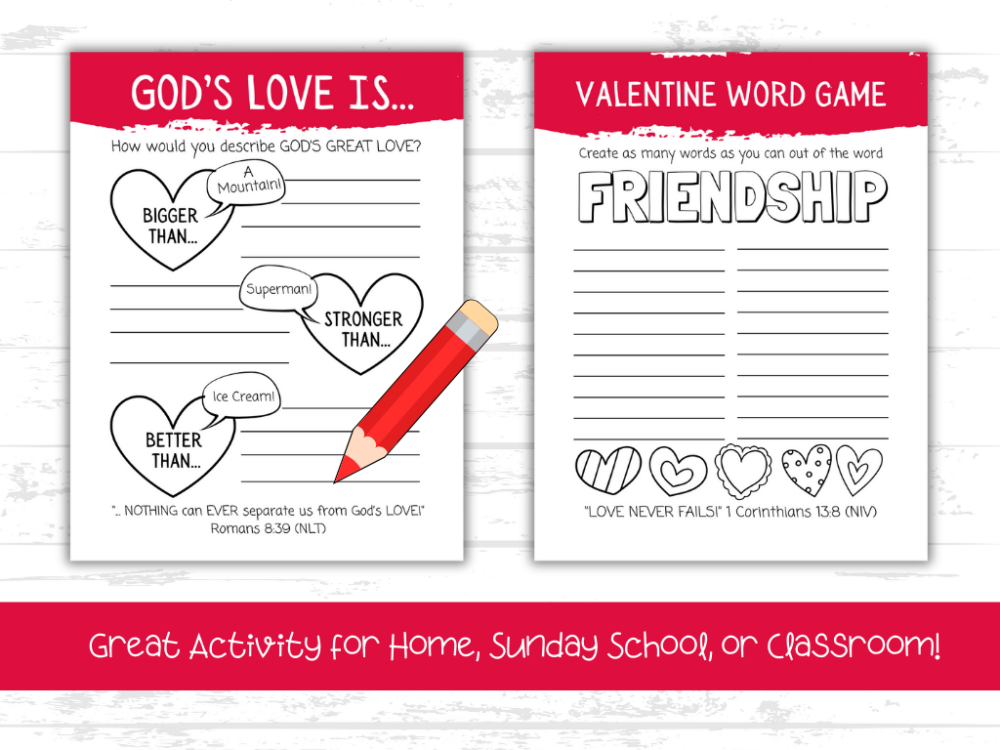 GOD'S LOVE IS...
How would you describe GOD'S GREAT LOVE?
A
Mountain!
BIGGER
THAN...
Superman!
STRONGER
THAN...
Ice Cream!
BETTER
THAN...
"... NOTHING can EVER separate us from God's LOVE!"
Romans 8:39 (NLT)
VALENTINE WORD GAME
Create as many words as you can out of the word
FRIENDSHIP
"LOVE NEVER FAILS!" 1 Corinthians 13:8 (NIV)
Great Activity for Home, Sunday School, or Classroom!